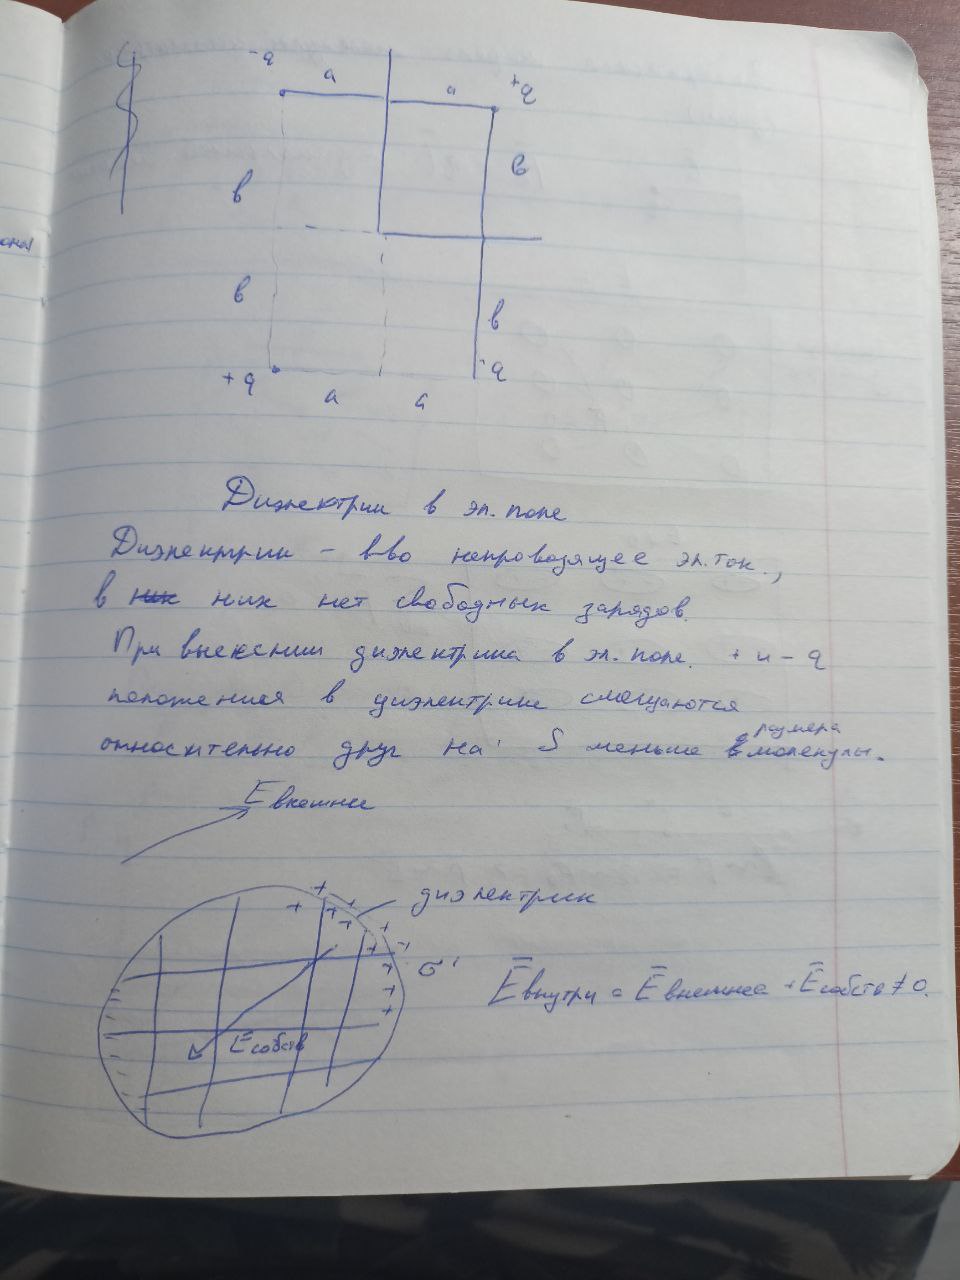 -q
a
a
+q
в
в
в
в
+q
-q
a
a
Диэлектрик в эл. поле
Диэлектрик - в-во непроводящее эл. ток.,
в них нет свободных зарядов.
При внесении диэлектрика в эл. поле. + и - q
положения в диэлектрике смещаются
относительно друг на S меньше размера молекулы.
E внешнее
диэлектрик
σ'
E собств
E внутри = E внешнее + E собств ≠ 0.